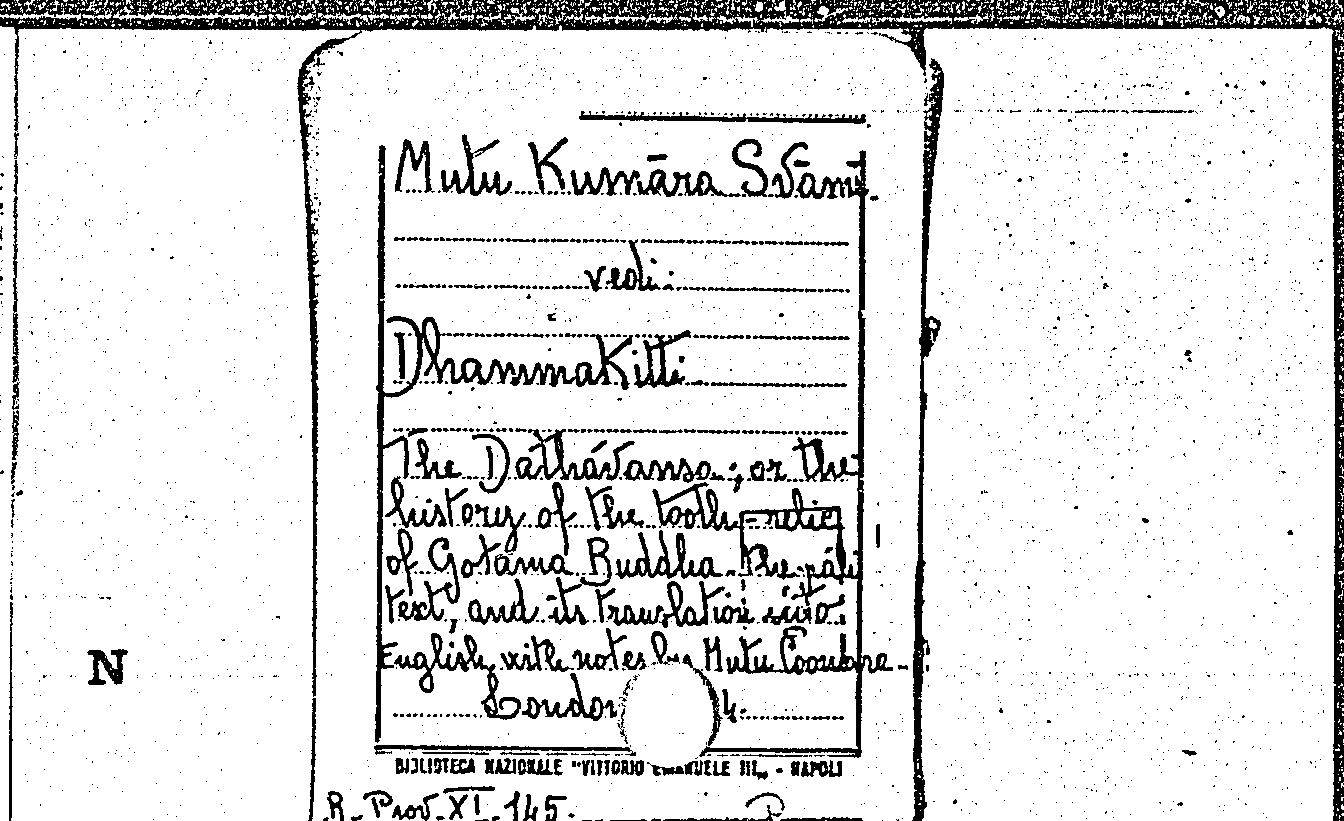 Mutu Kumāra Svāmi.
vedi:
Dhammakitti
The Dathávansa; or the
history of the tooth-relic
of Gotama Buddha. The páli
text, and its translation into
English with notes by Mutu Coomára-
London 4.
BIBLIOTECA NAZIONALE "VITTORIO EMANUELE III" - NAPOLI
R. Prov. XI. 145.
N